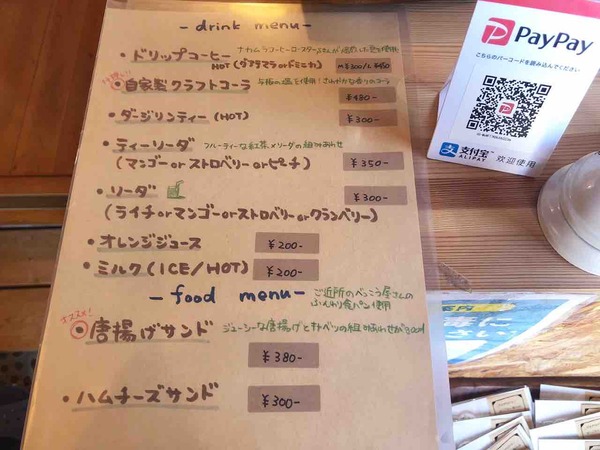 - drink menu -
・ドリップコーヒー
HOT (グアテマラ or ドミニカ) M ¥300/L ¥450
・自家製クラフトコーラ
¥480-
・ダージリンティー (HOT)
¥300-
・ティーソーダ フルーティーな紅茶×ソーダの組み合わせ
(マンゴー or ストロベリー or ピーチ) ¥350-
・ソーダ
¥300-
(ライチ or マンゴー or ストロベリー or クランベリー)
・オレンジジュース ¥200-
・ミルク (ICE/HOT) ¥200-
- food menu - ご近所のべっこう屋さんの
ふんわり食パン使用
オススメ!
・唐揚げサンド ジューシーな唐揚げとキャベツの組み合わせがgood
¥380-
・ハムチーズサンド ¥300-
PayPay
こちらのバーコードを読み込んでください
支付宝 ALIPAY 欢迎使用